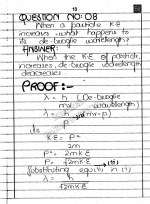 13
QUESTION NO: 08
When a particle K.E
increases what happens to
its de-broglie wavelength?
ANSWER:
When the K.E of particle
increases, de-broglie wavelength
decreases.
PROOF:-
λ = h (De-broglie
mv wavelength)
λ = h (mv = p)
P
K.E = P²
2m
P² = 2mK.E
P = √2mK.E → (ii)
Substituting equ(ii) in (i)
λ = h
√2mK.E